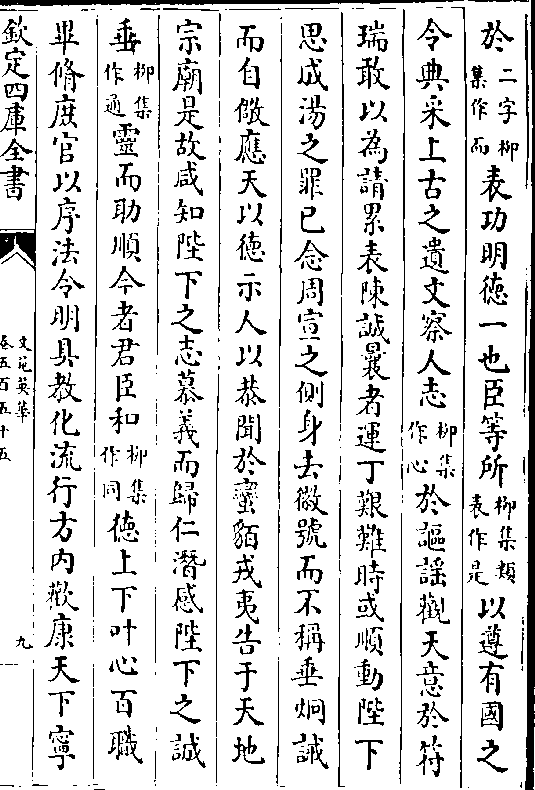 於二字柳集作而表功明徳一也臣等所柳集類表作是以遵有國之
令典采上古之遺文察人志柳集作心於謳謡觀天意於符
瑞敢以為請累表陳誠曩者運丁艱難時或順動陛下
思成湯之罪已念周宣之側身去徽號而不稱垂炯誡
而自儆應天以徳示人以恭聞於蠻貊戎夷告于天地
宗廟是故咸知陛下之志慕義而歸仁潛感陛下之誠
垂柳集作通靈而助順今者君臣和柳集作同徳上下叶心百職
畢脩庶官以序法令明具教化流行方内歡康天下寧
欽定四庫全書
文苑英華
卷五百五十五
九